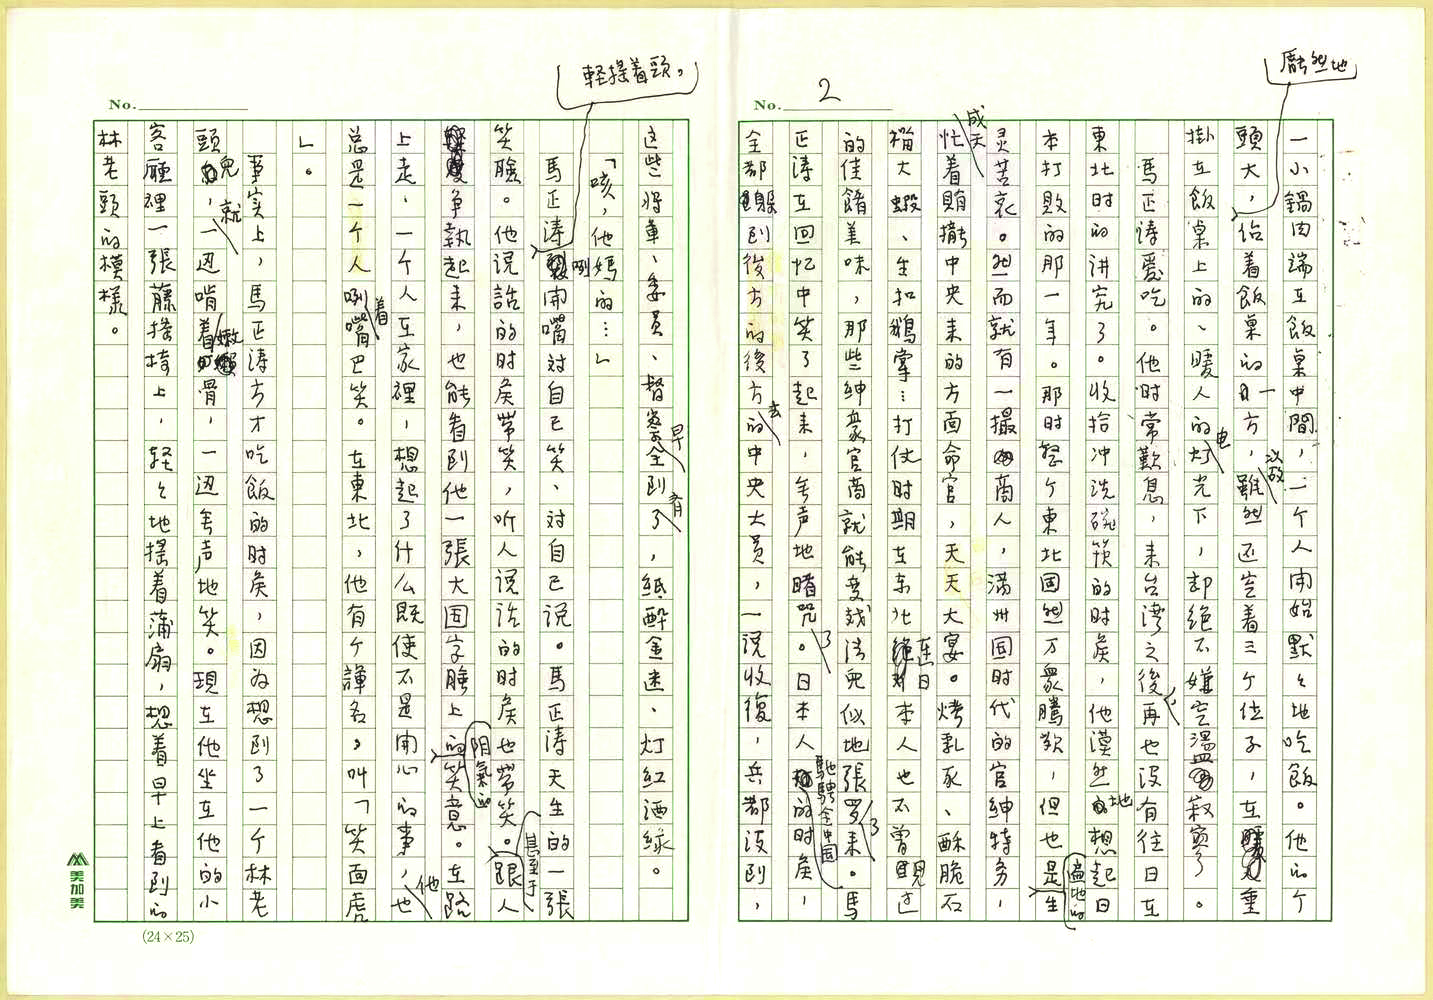 No. 2
厖然地
一小鍋肉端在飯桌中間,一个人開始默々地吃飯。他的个
頭大,佔着飯桌的一方,雖然还空着三个位子,在
掛在飯桌上的、暖人的电灯光下,却絕不嫌空溫寂寞了。
馬正濤愛吃。他时常歎息,来台湾之後,再也没有往日在
東北时的讲究了。收拾冲洗碗筷的时矦,他漠然地想起日
本打敗的那一年。那时整个東北固然万眾騰歡,但也是遍地的生
灵苦哀。然而就有一撮商人,滿州国时代的官紳特务,
成天忙着賄揽中央来的方面命官,天天大宴。烤乳豕、酥脆石
榴大蝦、生扣鵝掌…打仗时期在东北連日本人也不曾見过
的佳餚美味,那些紳豪官商就能变戏法兒似地張罗了来。馬
正濤在回忆中笑了起来,無声地暗咒了。日本人馳騁全中国的时矦,
全都躲到後方的後方去的中央大員,一說收復,兵都没到,
No.
輕搖着頭,
这些将軍、委員、督察早全到齐了,紙醉金迷、灯紅酒綠。
「咳,他媽的…」
馬正濤咧開嘴对自已笑、对自已說。馬正濤天生的一張
笑臉。他說話的时矦帶笑,听人說话的时矦也帶笑。甚至于跟人
争執起来,也能看到他一張大国字臉上的阴氣的笑意。在路
上走,一个人在家裡,想起了什么既使不是開心的事,他也
总是一个人咧着嘴巴笑。在東北,他有个諢名,叫「笑面虎
」。
事实上,馬正濤方才吃飯的时矦,因为想到了一个林老
頭兒,就一边啃着嫩骨,一边無声地笑。現在他坐在他的小
客廳裡一張藤搖椅上,輕々地搖着蒲扇,想着早上看到的
林老頭的模樣。
美加美
(24×25)